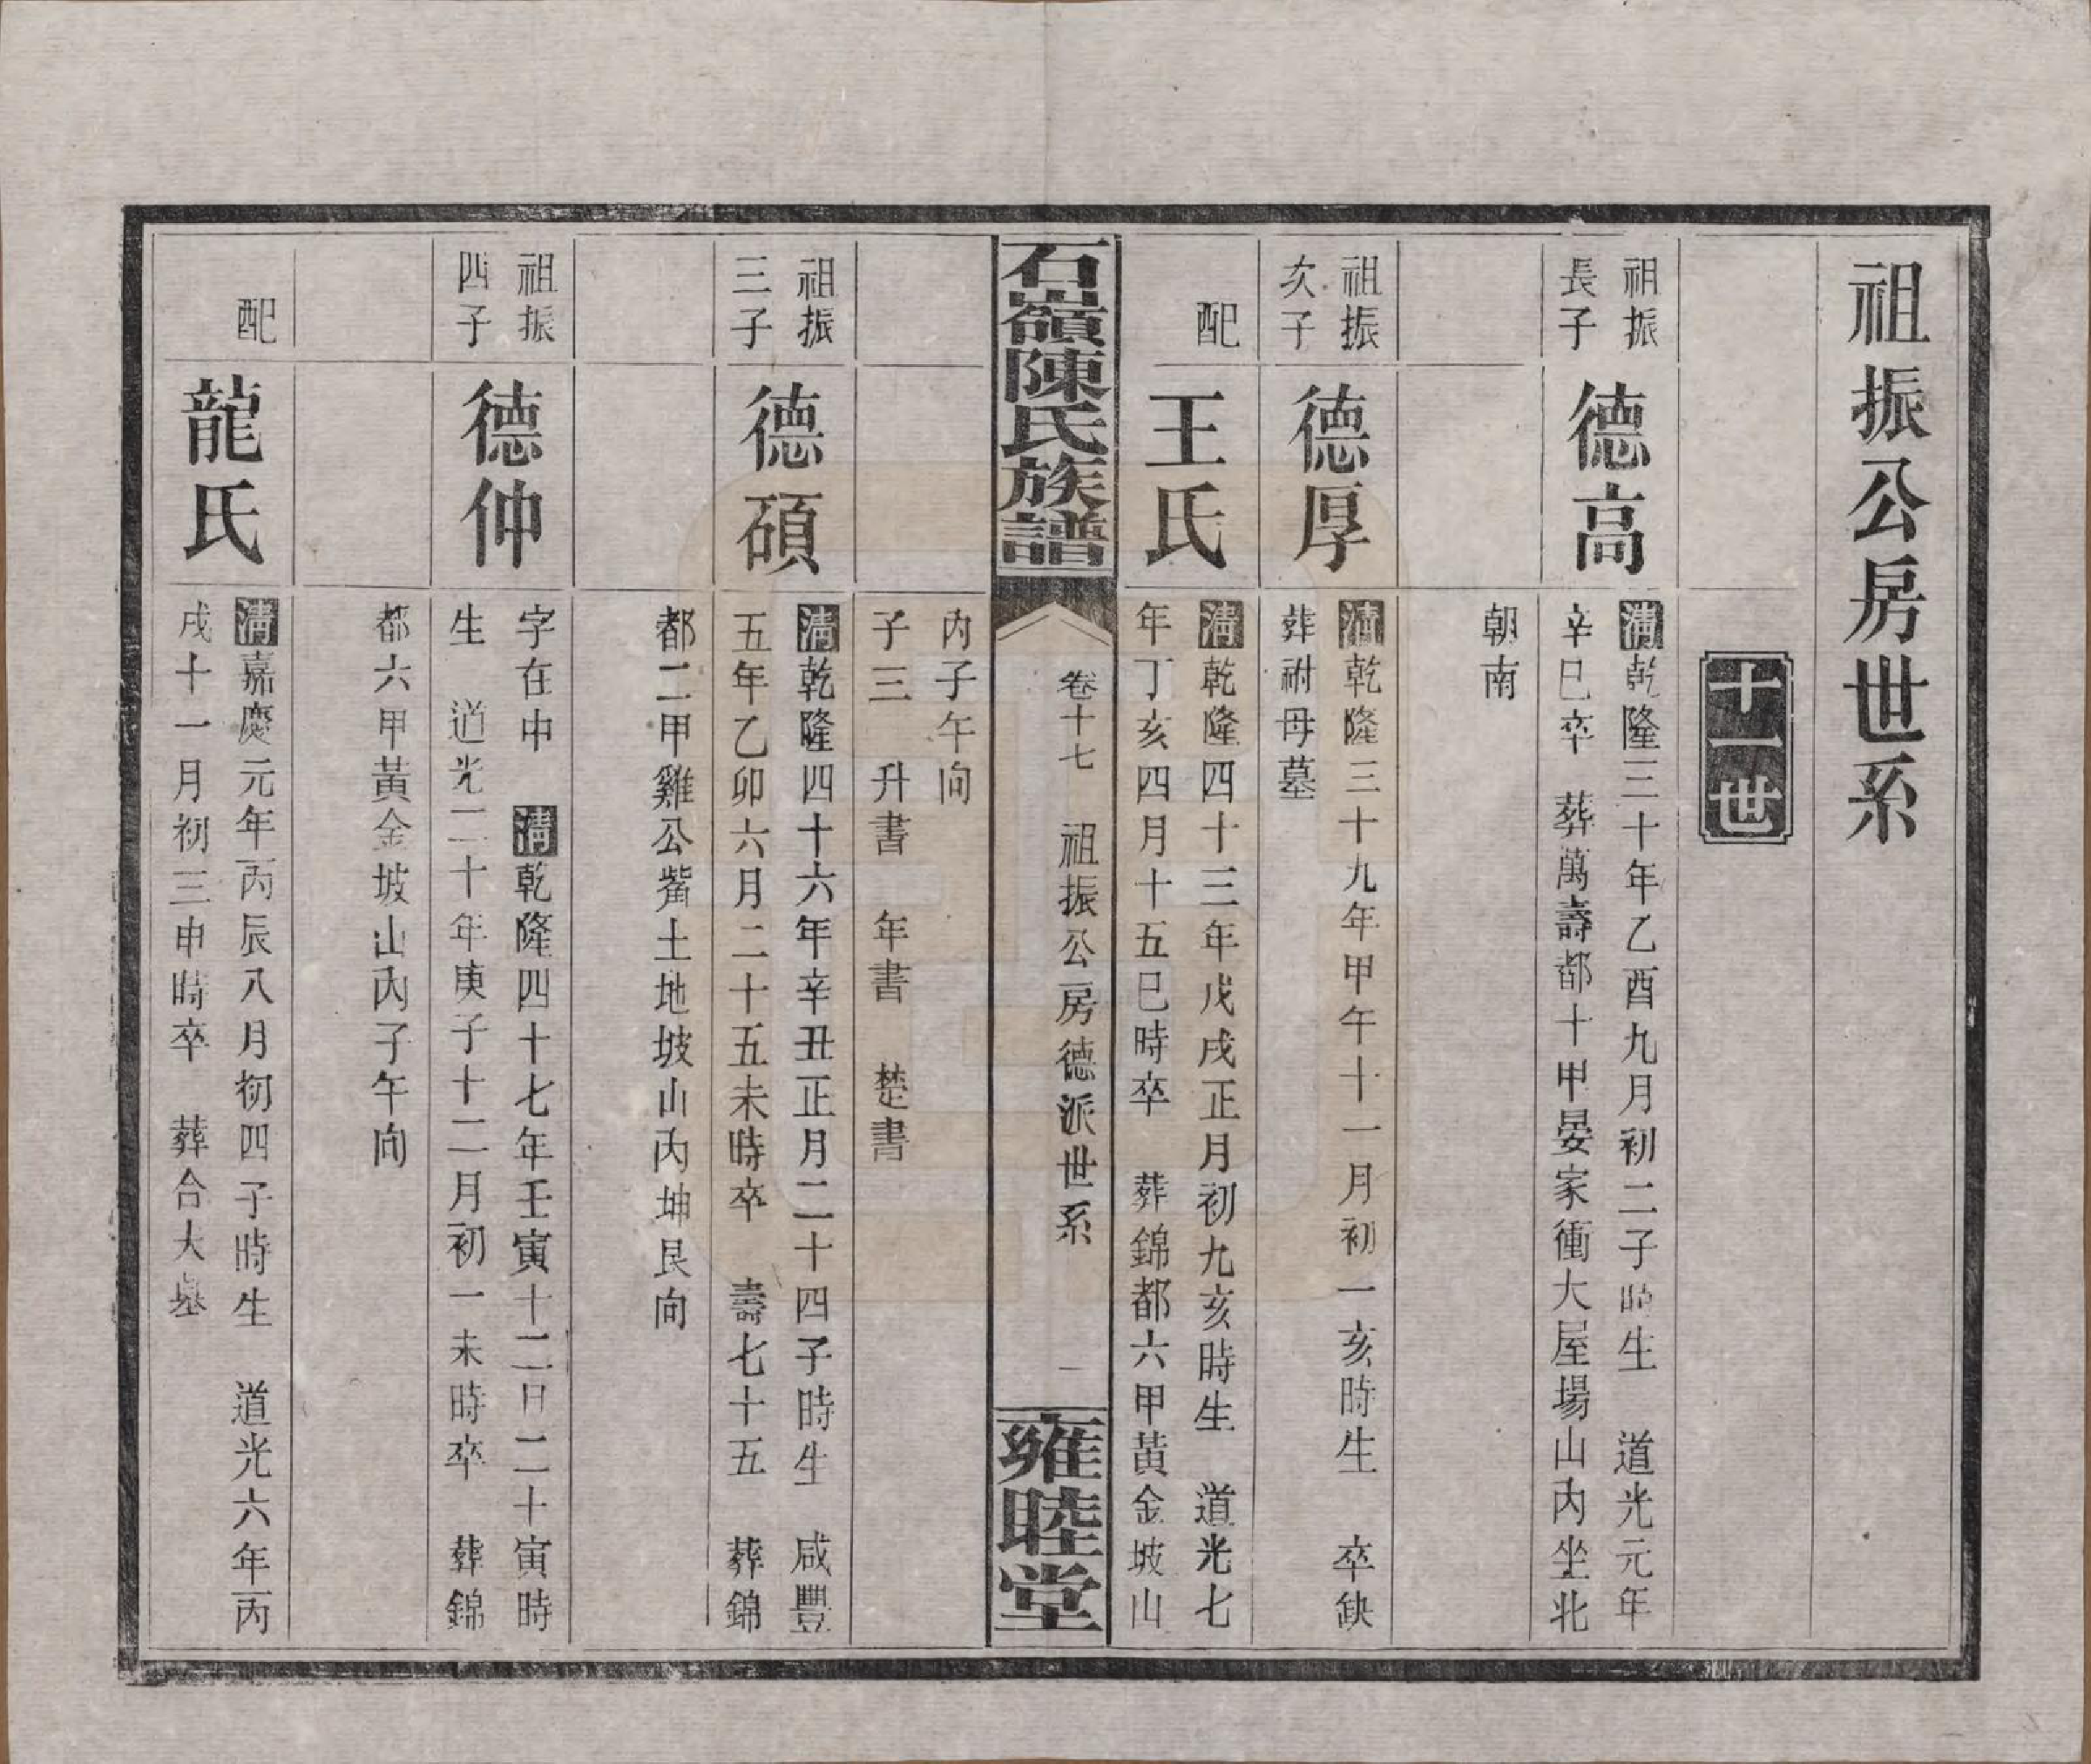 祖振公房世系
十一世
祖振
長子
德高
清乾隆三十年乙酉九月初二子時生　道光元年
辛巳卒　葬萬壽都十甲晏家衝大屋場山內坐北
朝南
祖振
次子
德厚
清乾隆三十九年甲午十一月初一亥時生　卒缺
葬祔母墓
配
王氏
清乾隆四十三年戊戌正月初九亥時生　道光七
年丁亥四月十五巳時卒　葬錦都六甲黃金坡山
石嶺陳氏族譜
卷十七　祖振公房德派世系
一
雍睦堂
內子午向
子三　升書　年書　楚書
祖振
三子
德碩
清乾隆四十六年辛丑正月二十四子時生　咸豐
五年乙卯六月二十五未時卒　壽七十五　葬錦
都二甲雞公觜土地坡山內坤艮向
祖振
四子
德仲
字在中　清乾隆四十七年壬寅十二月二十寅時
生　道光二十年庚子十二月初一未時卒　葬錦
都六甲黃金坡山內子午向
配
龍氏
清嘉慶元年丙辰八月初四子時生　道光六年丙
戌十一月初三申時卒　葬合大墓